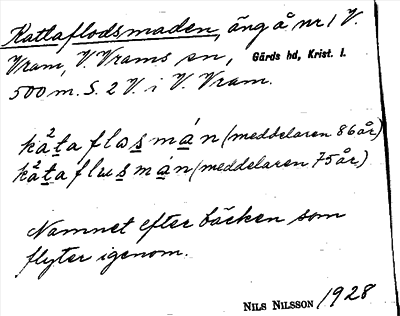 Kattaflodsmaden, äng å nr 1 V.
Vram, V. Vrams sn, Gärds hd, Krist. l.
500 m. S. 2 V. i V. Vram.
ka²ta flosmán (meddelaren 86 år)
ka²ta flusmán (meddelaren 75 år)
Namnet efter bäcken som
flyter igenom.
NILS NILSSON 1928